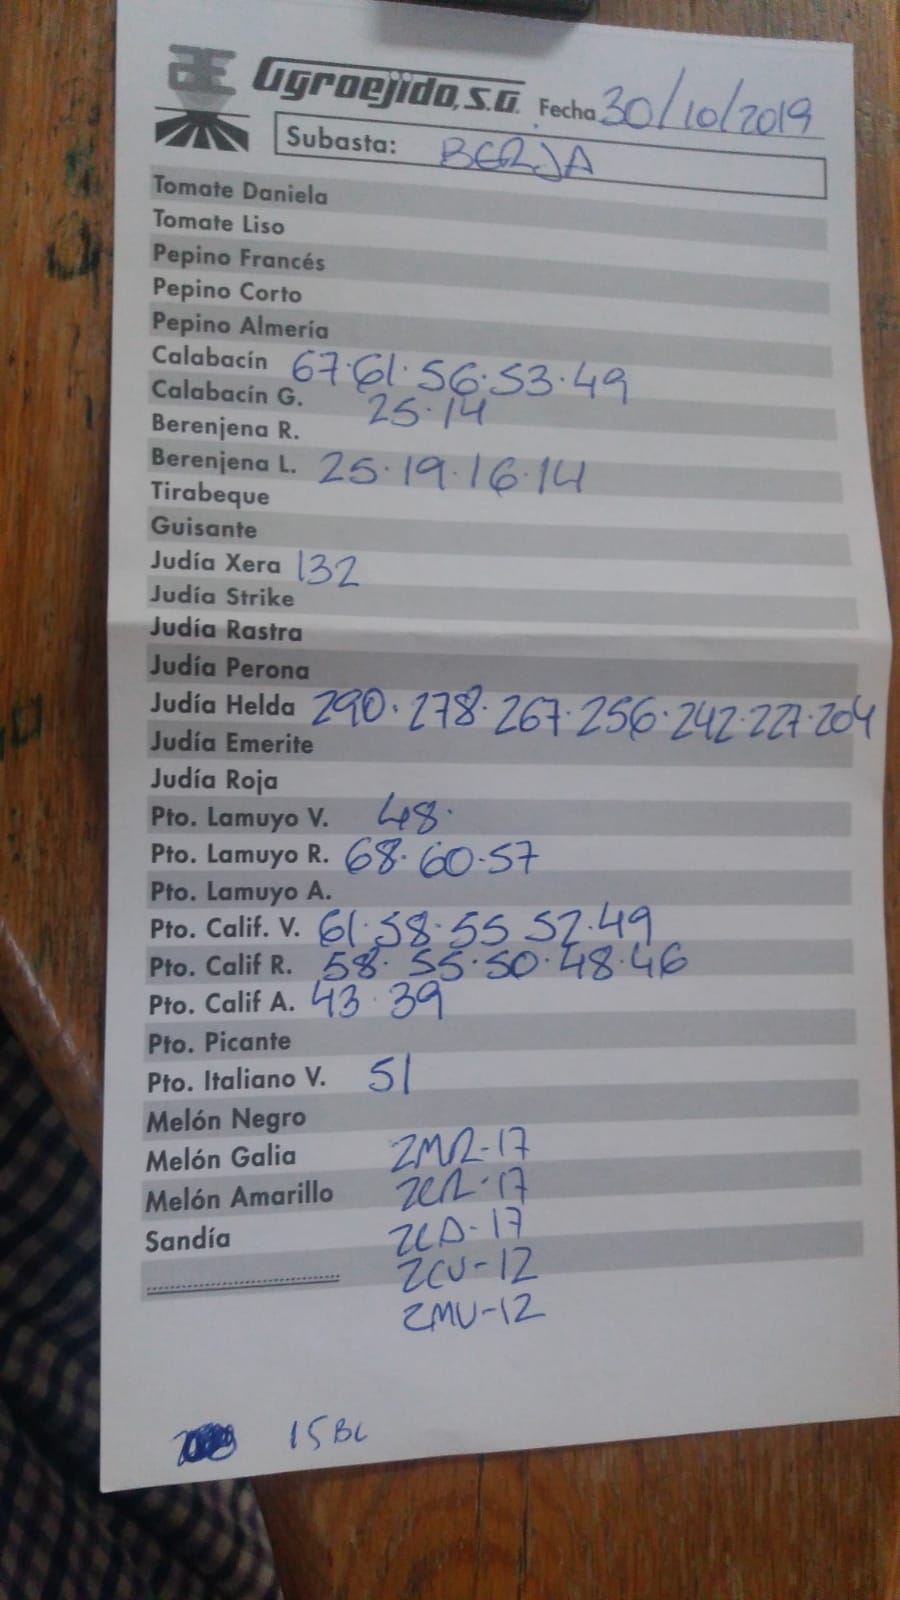 Agroejido, S.A. Fecha 30/10/2019
Subasta: BERJA
Tomate Daniela
Tomate Liso
Pepino Francés
Pepino Corto
Pepino Almería
Calabacín 67·61·56·53·49
Calabacín G. 25·14
Berenjena R.
Berenjena L. 25·19·16·14
Tirabeque
Guisante
Judía Xera 132
Judía Strike
Judía Rastra
Judía Perona
Judía Helda 290·278·267·256·242·227·204
Judía Emerite
Judía Roja
Pto. Lamuyo V. 48·
Pto. Lamuyo R. 68·60·57
Pto. Lamuyo A.
Pto. Calif. V. 61·58·55 52·49
Pto. Calif R. 58·55·50·48·46
Pto. Calif A. 43·39
Pto. Picante
Pto. Italiano V. 51
Melón Negro
Melón Galia ZMR-17
Melón Amarillo ZCR-17
Sandía ZCA-17
ZCV-12
ZMV-12
15BL